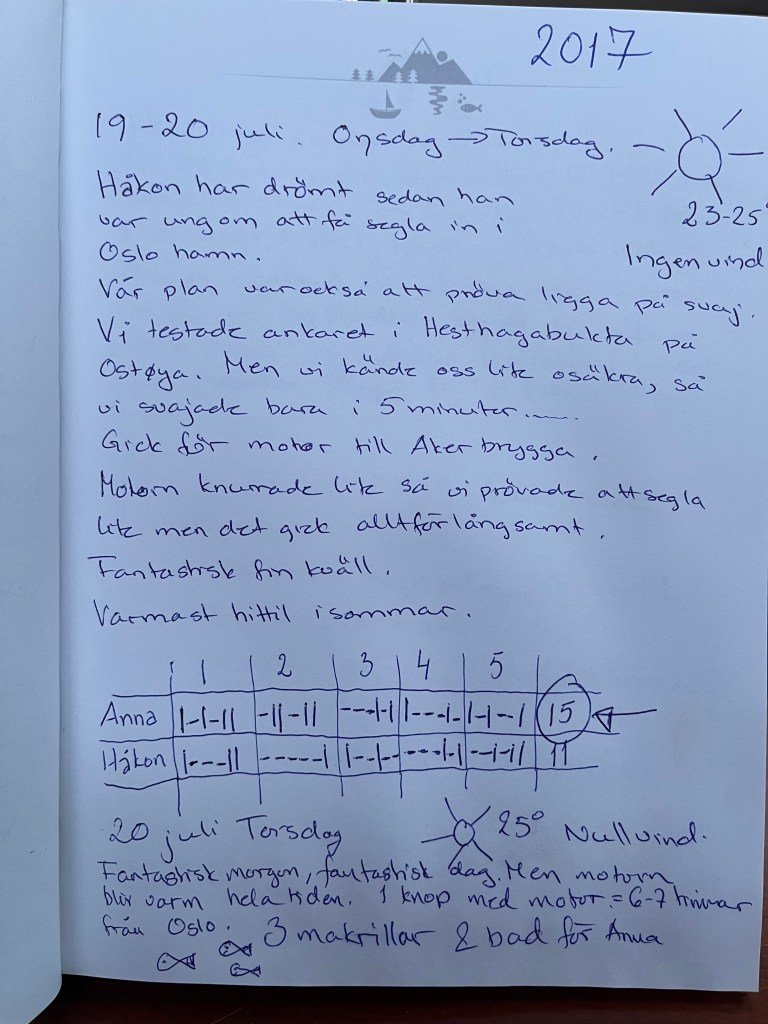 2017
19-20 juli. Onsdag → Torsdag.
23-25°
Ingen vind
Håkon har drömt sedan han
var ung om att få segla in i
Oslo hamn.
Vår plan var också att pröva ligga på svaj.
Vi testade ankaret i Hesthagabukta på
Ostøya. Men vi kände oss lite osäkra, så
vi svajade bara i 5 minuter......
Gick för motor till Aker brygga.
Motorn knurrade lite så vi prövade att segla
lite men det gick alltför långsamt.
Fantastisk fin kväll.
Varmast hittil i sommar.
1 2 3 4 5
Anna |-|-|| -||-|| ---|-| |---|- |-|--| 15
Håkon |---|| -----| |--|-- ---|-| --|-|| 11
20 juli Torsdag 25° Nullvind.
Fantastisk morgon, fantastisk dag. Men motorn
blir varm hela tiden. 1 knop med motor. = 6-7 timmar
från Oslo. 3 makrillar & bad för Anna